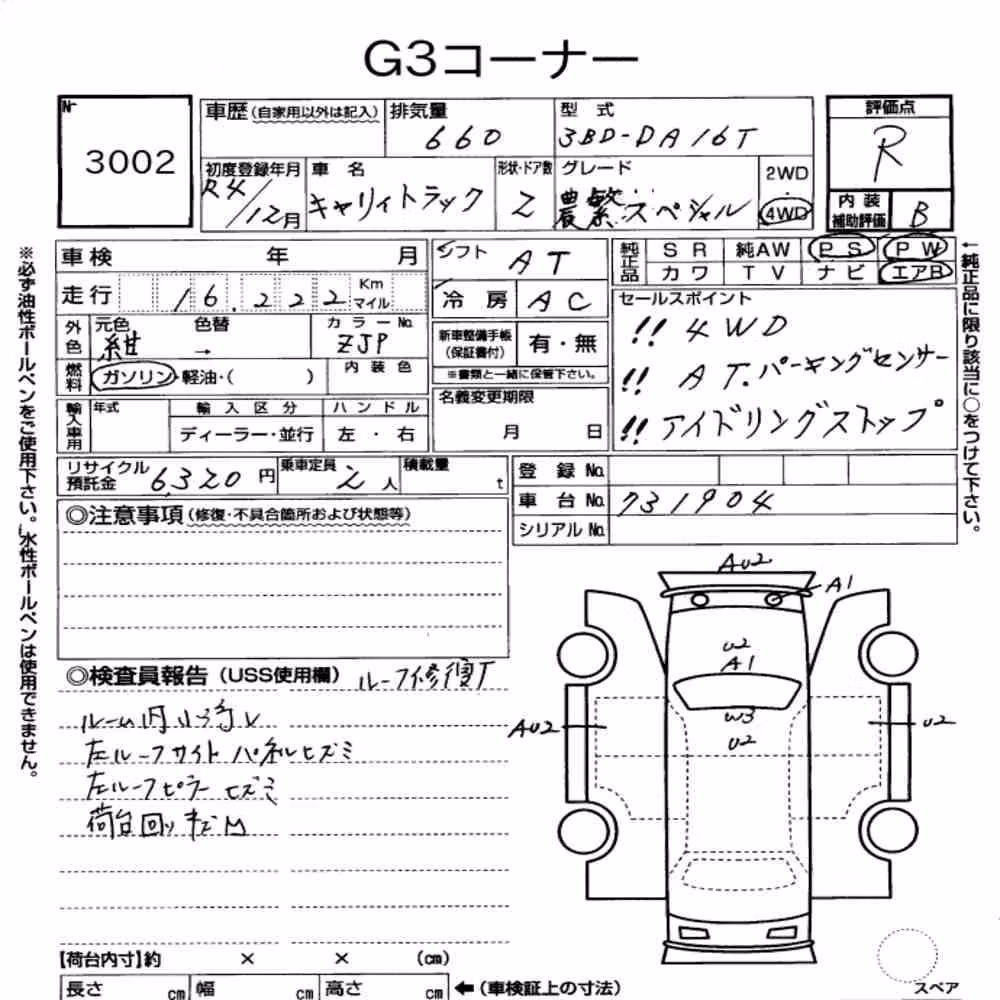 G3コーナー
№
3002
車歴(自家用以外は記入)
排気量
660
型 式
3BD-DA16T
評価点
R
初度登録年月
R4/12月
車 名
キャリィトラック
形状・ドア数
2
グレード
農繁スペシャル
2WD
・
4WD
内 装
補助評価
B
車検 年 月
走行 16,222 Km
マイル
シフト AT
冷 房 AC
純正品
SR 純AW PS PW
カワ TV ナビ エアB
外色
元色 色替
紺 →
カラーNo.
ZJP
新車整備手帳
(保証書付)
有・無
※書類と一緒に保管下さい。
セールスポイント
!! 4WD
!! AT.パーキングセンサー
!! アイドリングストップ
燃料
ガソリン・軽油・( )
内 装 色
輸入車用
年式
輸 入 区 分
ディーラー・並行
ハ ン ド ル
左 ・ 右
名義変更期限
月 日
リサイクル
預託金
6,320 円
乗車定員
2 人
積載量
t
登 録 No.
車 台 No. 731904
シリアル No.
◎注意事項(修復・不具合箇所および状態等)
◎検査員報告(USS使用欄) ルーフ修復了
ルーム内小汚レ
左ルーフサイドパネルヒズミ
左ルーフピラーヒズミ
荷台回りキズM
AU2
A1
U2
A1
W3
U2
AU2
U2
スペア
【荷台内寸】約 × × (cm)
長さ cm 幅 cm 高さ cm
←(車検証上の寸法)
※必ず油性ボールペンをご使用下さい。水性ボールペンは使用できません。
←純正品に限り該当に○をつけて下さい。